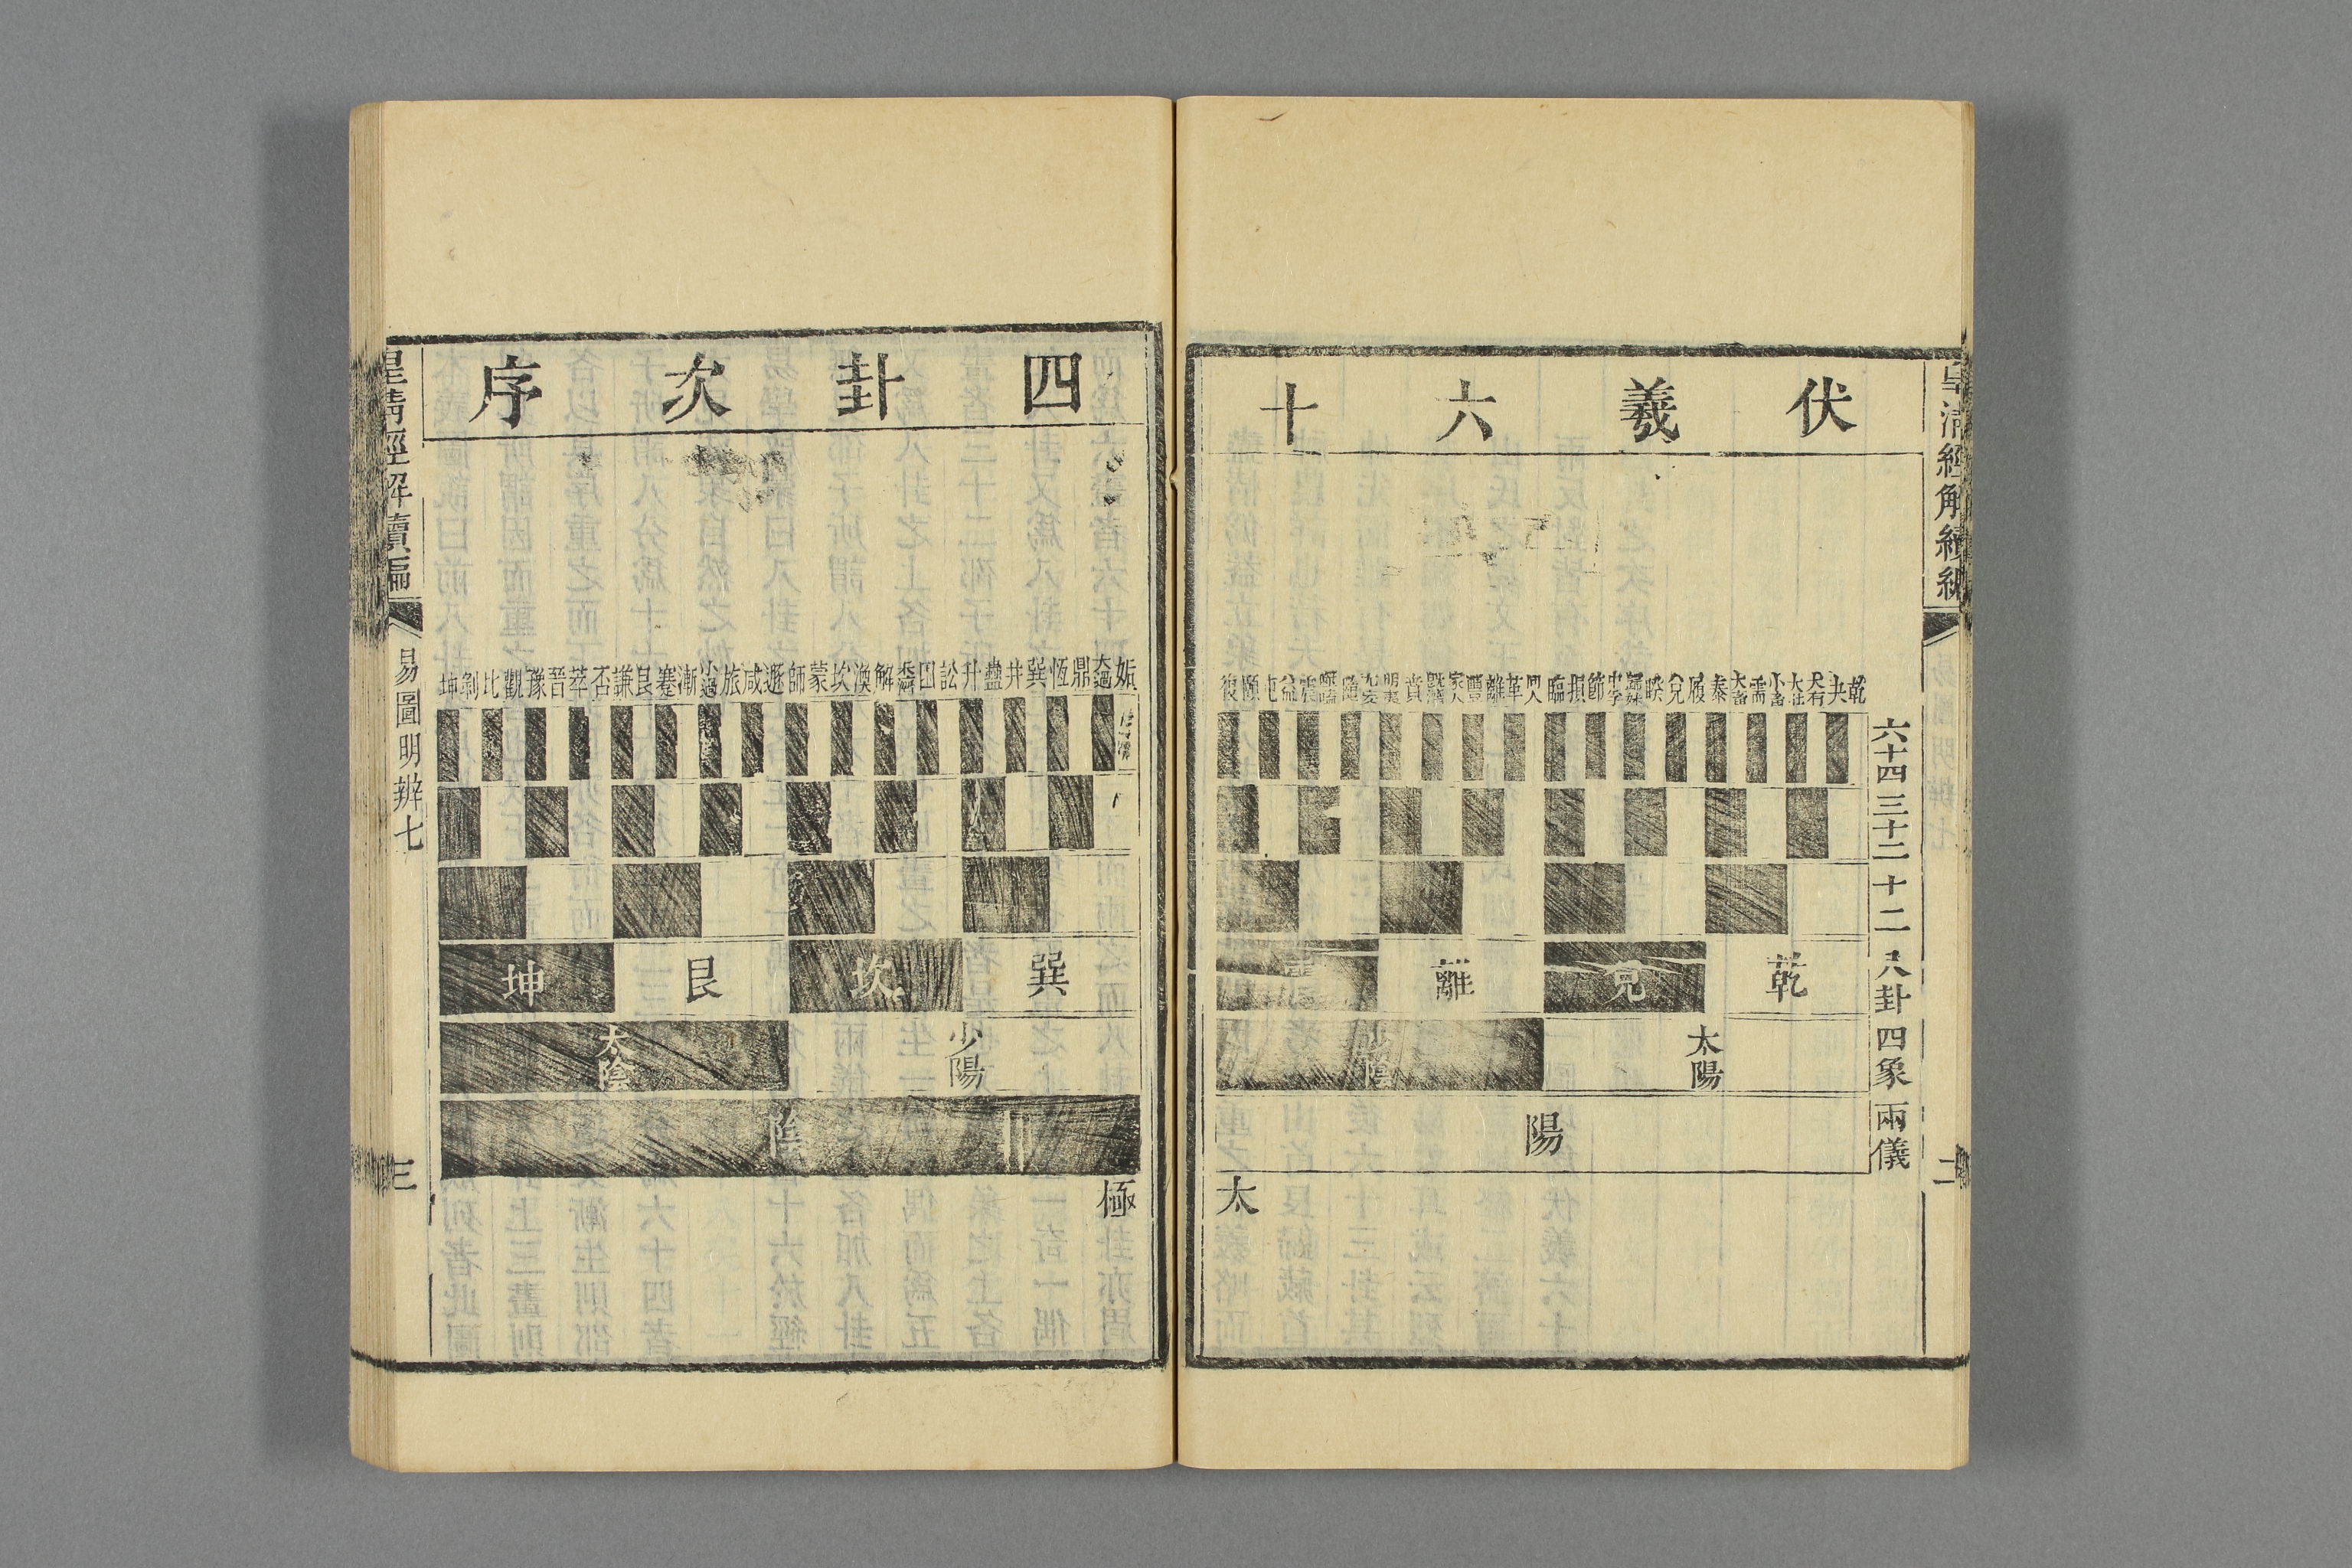 皇清經解續編
二
伏羲六十
乾夬大有大壯小畜需大畜泰履兌睽歸妹中孚節損臨同人革離豐家人既濟賁明夷无妄隨噬嗑震益屯頤復
六十四
三十二
十二
八卦
四象
兩儀
乾兌離震
太陽 少陰
陽
太
四卦次序
姤大過鼎恆巽井蠱升訟困未濟解渙坎蒙師遯咸旅小過漸蹇艮謙否萃晉豫觀比剝坤
巽坎艮坤
少陽 太陰
陰
極
皇清經解續編
易圖明辨七
三